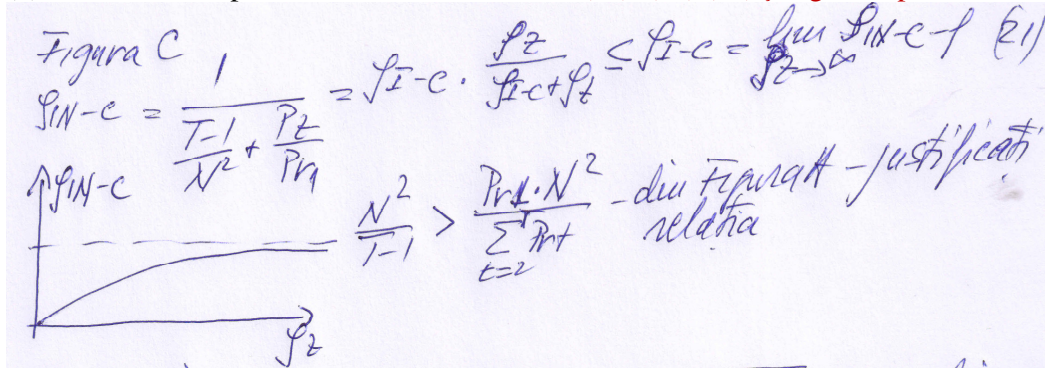 Figura C
ρIN-C = 1 / ((T-1)/N² + Pz/Pr1) = ρI-C · ρz/(ρI-C+ρz) ≤ ρI-C = lim ρz→∞ ρIN-C - f (21)
ρIN-C
N²/(T-1) > Pr1·N² / Σ t=2 Prt - din Figura A - justificați
relația
ρz